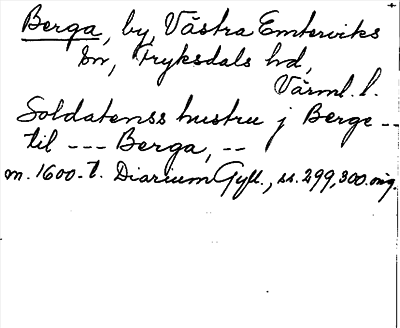 Berga, by, Västra Emterviks
sn, Fryksdals hd,
Värml. l.
Soldatenss hustru j Berge --
til --- Berga, --
m. 1600-t. Diarium Gyll., ss. 299, 300. orig.